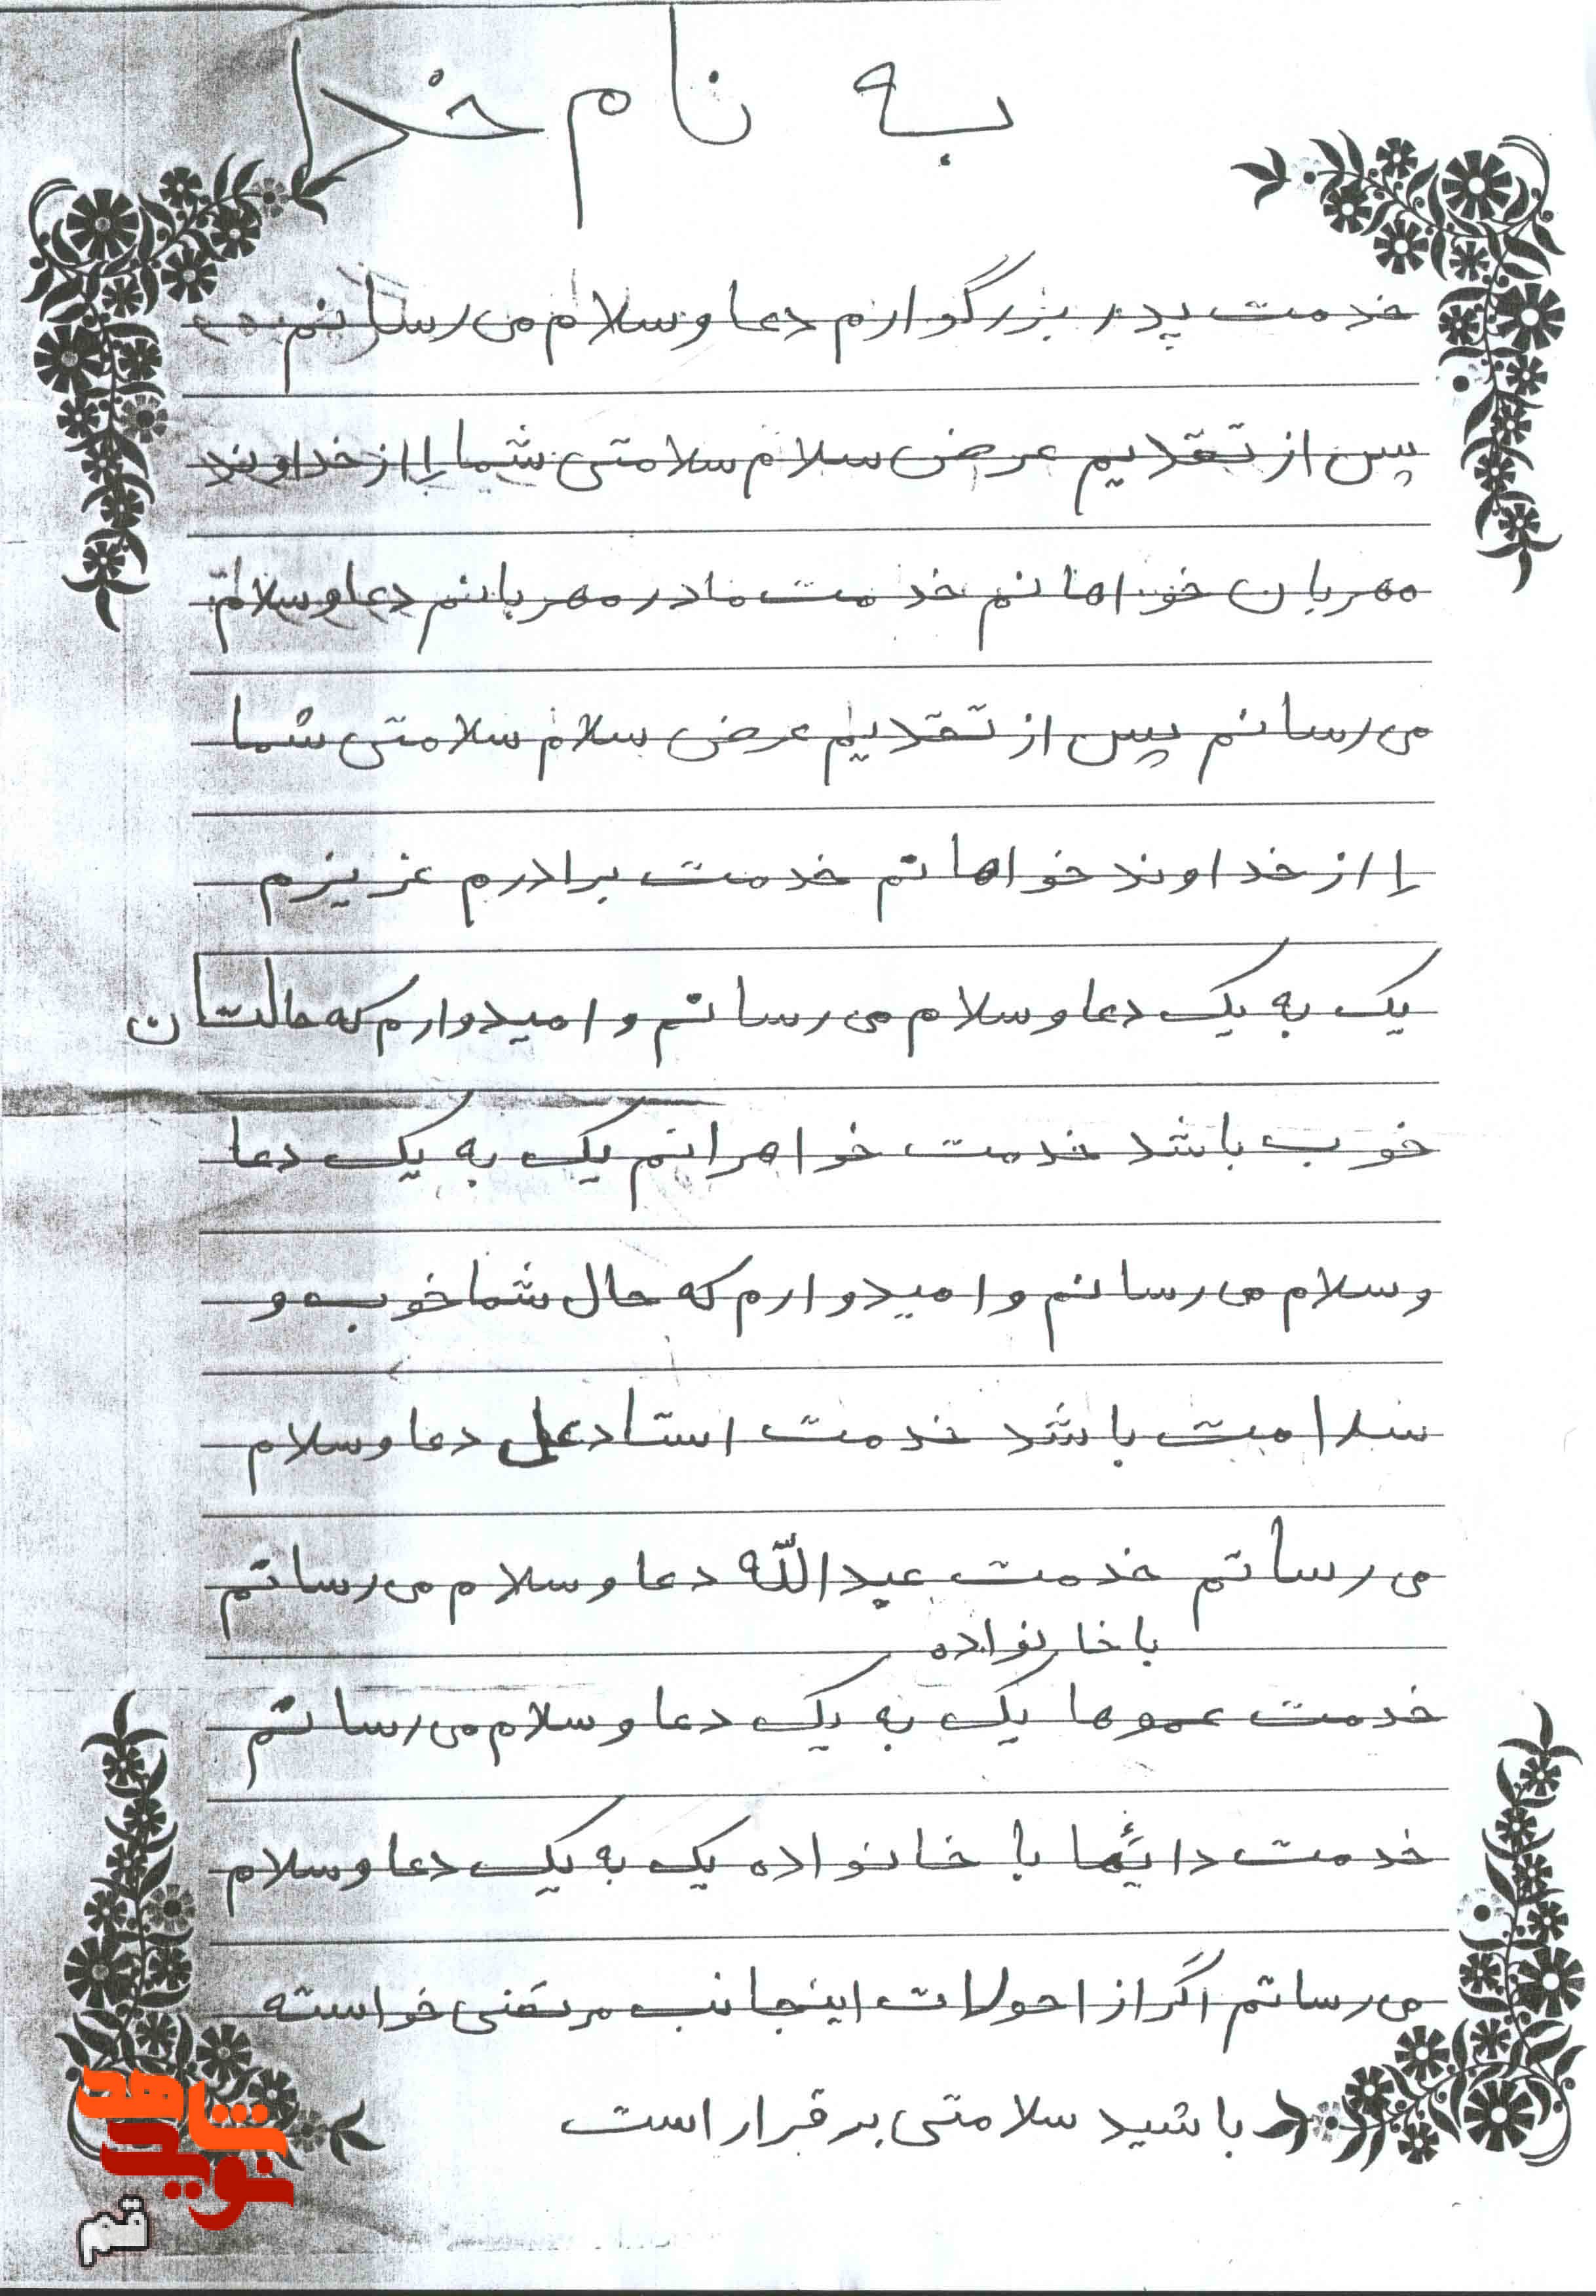 به نام خدا
خدمت پدر بزرگوارم دعا و سلام می رسانم
پس از تقدیم عرض سلام سلامتی شما را از خداوند
مهربان خواهانم خدمت مادر مهربانم دعا و سلام
می رسانم پس از تقدیم عرض سلام سلامتی شما
را از خداوند خواهانم خدمت برادرم عزیزم
یک به یک دعا و سلام می رسانم و امیدوارم که حالتان
خوب باشد خدمت خواهرانم یک به یک دعا
و سلام می رسانم و امیدوارم که حال شما خوب و
سلامت باشد خدمت استاد علی دعا و سلام
می رسانم خدمت عبدالله دعا و سلام می رسانم
با خانواده
خدمت عموها یک به یک دعا و سلام می رسانم
خدمت دائیها با خانواده یک به یک دعا و سلام
می رسانم اگر از احولات اینجانب مرتضی خواسته
باشید سلامتی برقرار است
نوید شاهد
قم